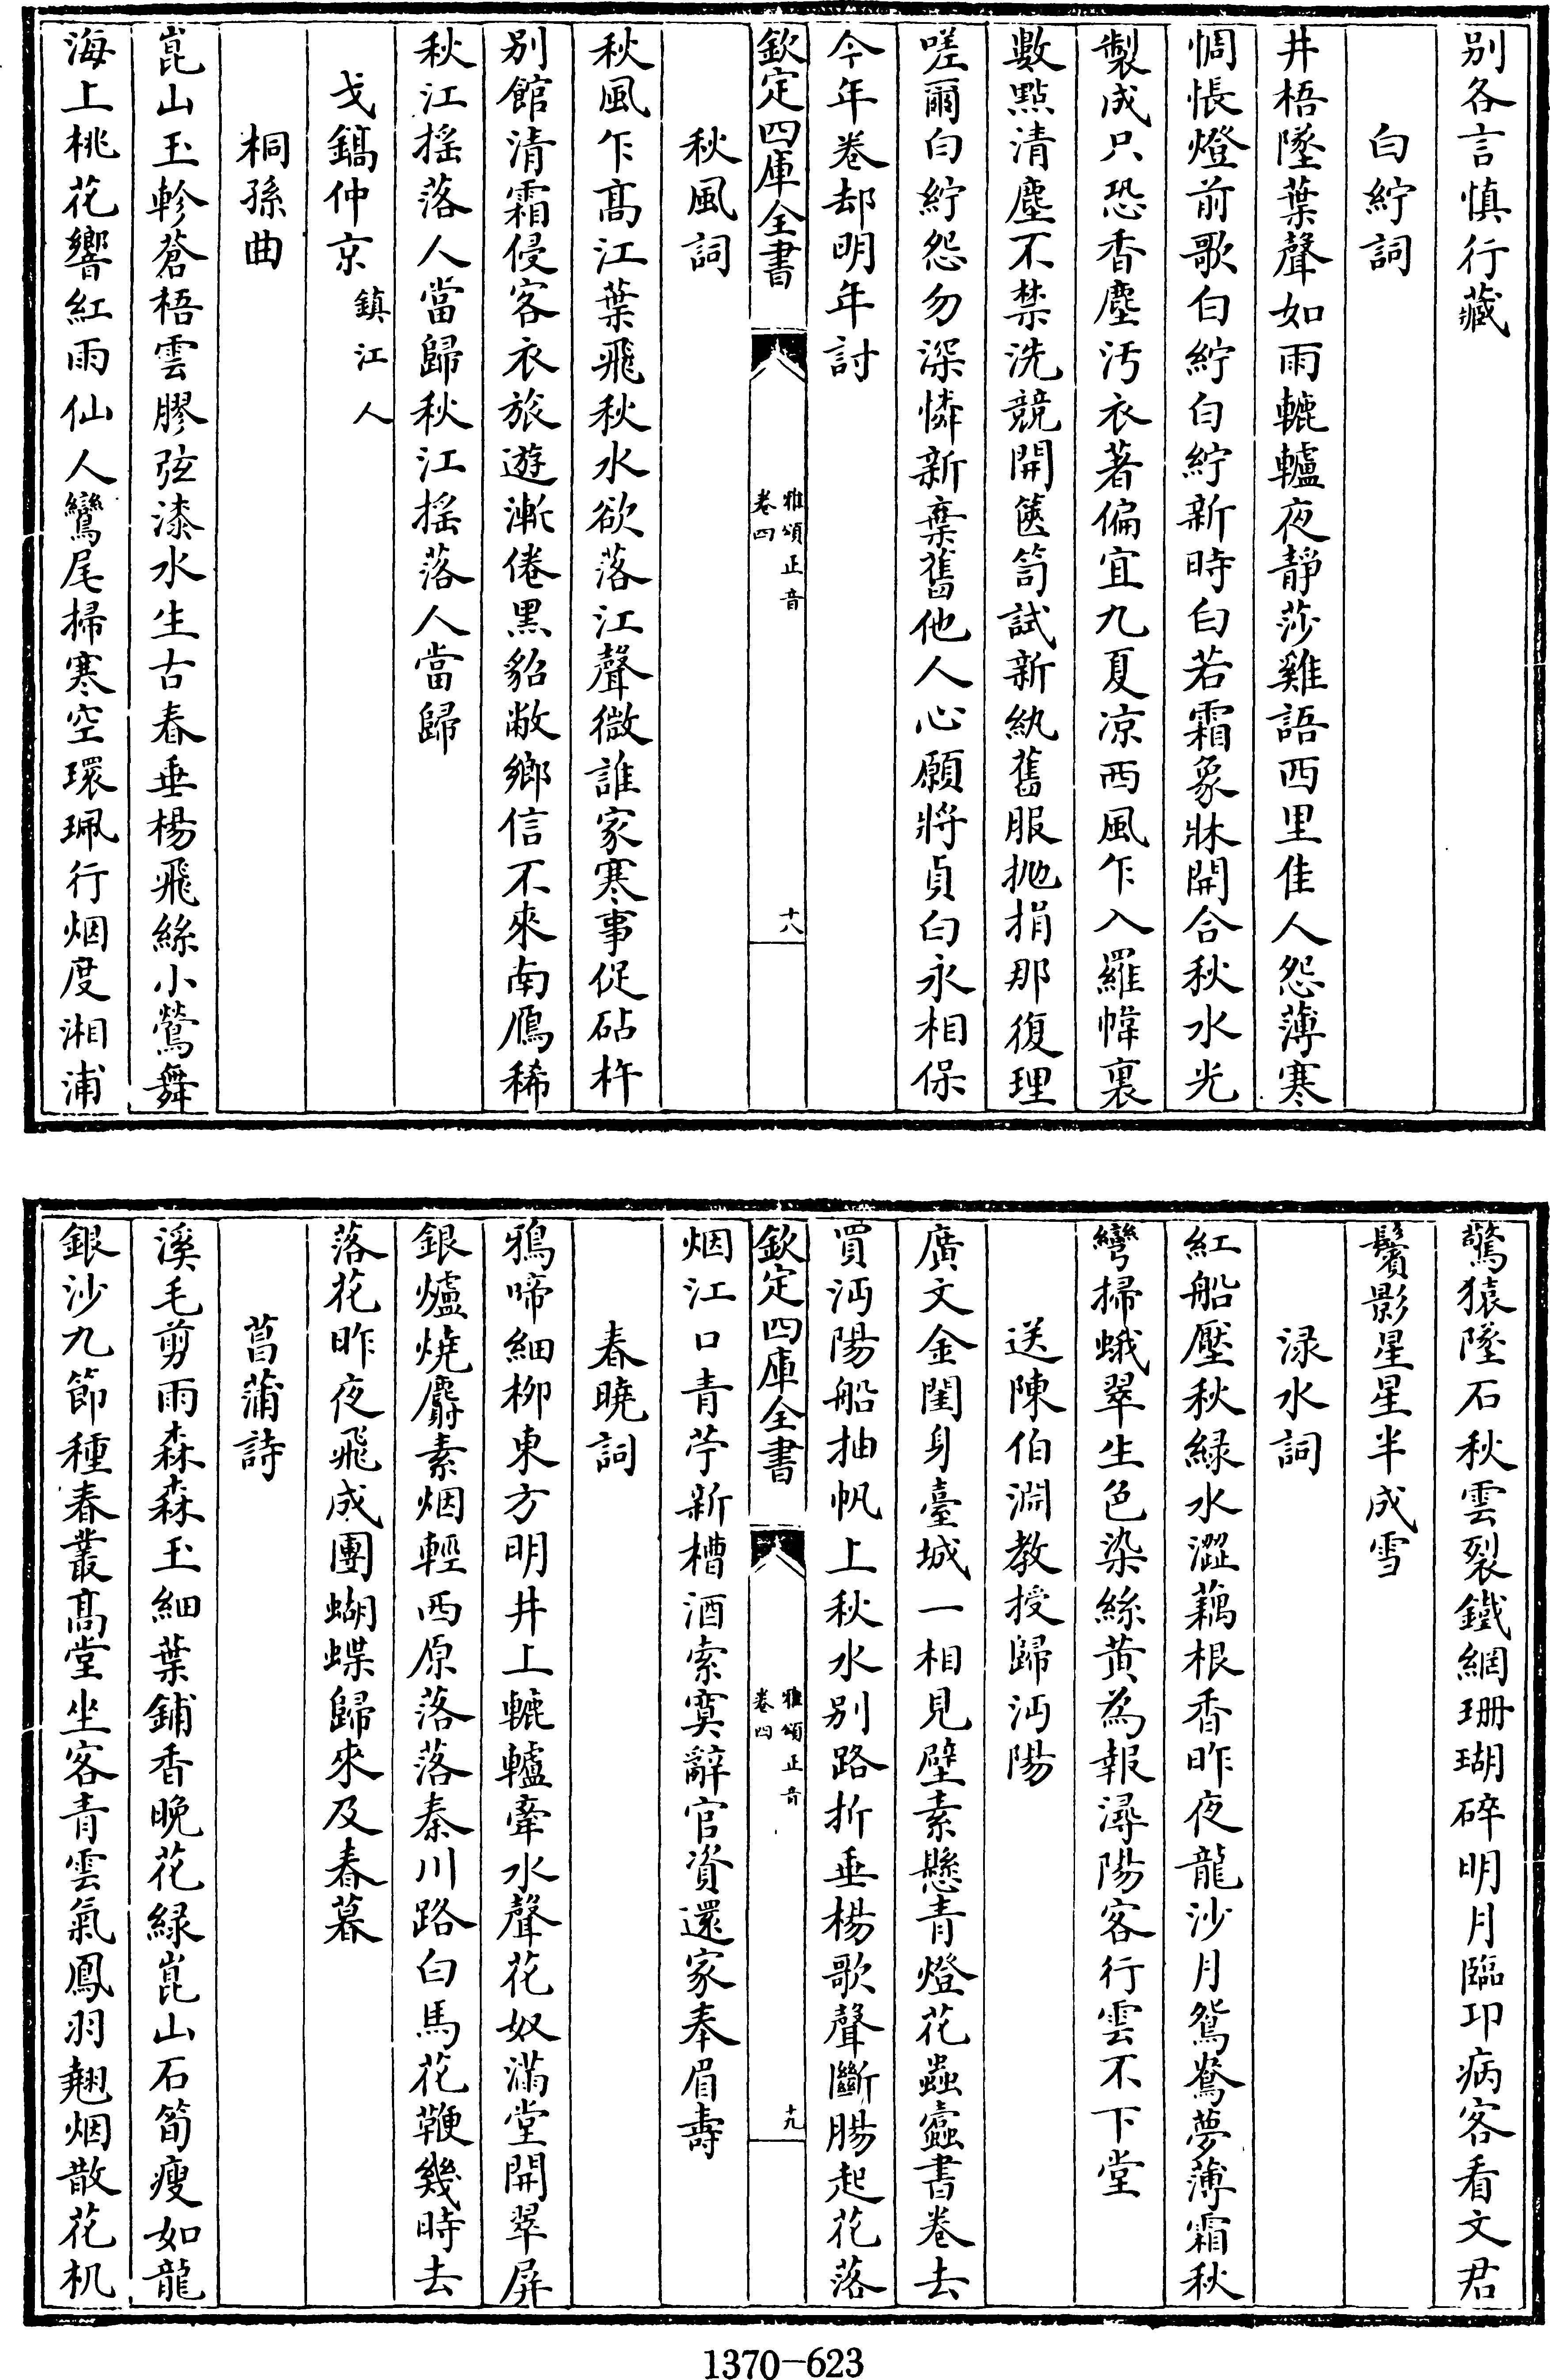 别各言慎行藏
白紵詞
井梧墜葉聲如雨轆轤夜靜莎雞語西里佳人怨薄寒
惆悵燈前歌白紵白紵新時白若霜象牀開合秋水光
製成只恐香塵汚衣著偏宜九夏凉西風乍入羅幃裏
數點清塵不禁洗競開篋笥試新紈舊服抛捐那復理
嗟爾白紵怨勿深憐新棄舊他人心願將貞白永相保
今年卷却明年討
欽定四庫全書
雅頌正音
卷四
十八
秋風詞
秋風乍髙江葉飛秋水欲落江聲微誰家寒事促砧杵
别館清霜侵客衣旅遊漸倦黑貂敝鄉信不來南鴈稀
秋江摇落人當歸秋江摇落人當歸
戈鎬仲京鎮江人
桐孫曲
崑山玉軫蒼梧雲膠弦漆水生古春垂楊飛絲小鶯舞
海上桃花響紅雨仙人鸞尾掃寒空環珮行烟度湘浦
驚猿墜石秋雲裂鐵網珊瑚碎明月臨卭病客看文君
鬢影星星半成雪
渌水詞
紅船壓秋緑水澀藕根香昨夜龍沙月鴛鴦夢薄霜秋
彎掃蛾翠生色染絲黄為報潯陽客行雲不下堂
送陳伯淵教授歸沔陽
廣文金閨身臺城一相見壁素懸青燈花蟲蠹書卷去
買沔陽船抽帆上秋水别路折垂楊歌聲斷腸起花落
欽定四庫全書
雅頌正音
卷四
十九
烟江口青苧新槽酒索寞辭官資還家奉眉壽
春曉詞
鴉啼細柳東方明井上轆轤牽水聲花奴滿堂開翠屏
銀爐燒麝素烟輕西原落落秦川路白馬花鞭幾時去
落花昨夜飛成團蝴蝶歸來及春暮
菖蒲詩
溪毛剪雨森森玉細葉鋪香晚花緑崑山石筍瘦如龍
銀沙九節種春叢髙堂坐客青雲氣鳳羽翹烟散花机
1370-623